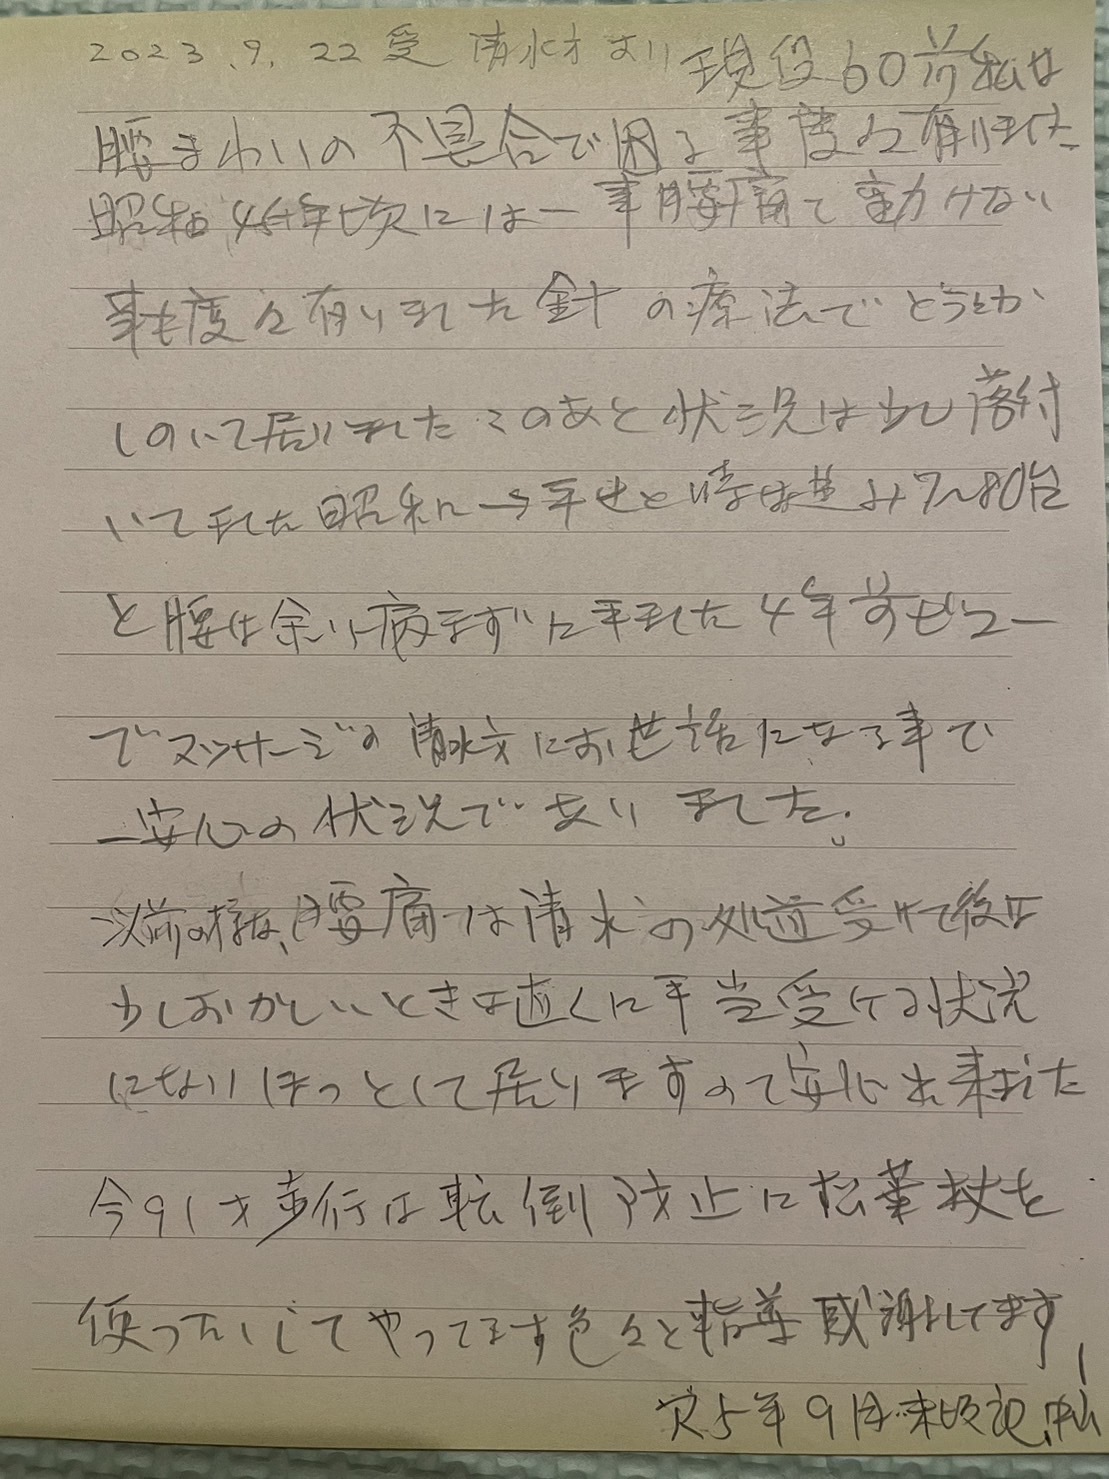 2023.9.22 受 清水才より 現役60前私は
腰まわいの不具合で困る事度々有りました
昭和45年頃には一事腰痛で動けない
事も度々有りました針の療法でどうにか
しのいで居りましたこのあと状況は少し落付
いてました昭和に→平せと時は進み7~80台
と腰は余り病まずに来ました4年前セ"ュー
でマッサージの清水才にお世話になる事で
一安心の状況でありました。
以前の様な、腰痛は清水の処置受けて後は
少しおかしいときは直ぐに手当受ける状況
になりほっとして居りますので安心出来ました
今91才歩行は転倒防止に松葉杖を
使ったりしてやってます色々と指導感謝してます!
5年9月末